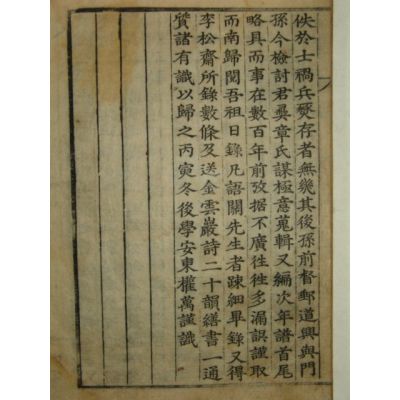 佚於士禍兵燹存者無幾其後孫前督郵道興與門
孫今檢討君奭章氏謀極意蒐輯又編次年譜首尾
略具而事在數百年前攷据不廣徃徃多漏誤謹取
而南歸閱吾祖日錄凡語關先生者疎細畢錄又得
李松齋所錄數條及送金雲巖詩二十韻繕書一通
質諸有識以歸之丙寅冬後學安東權萬謹識